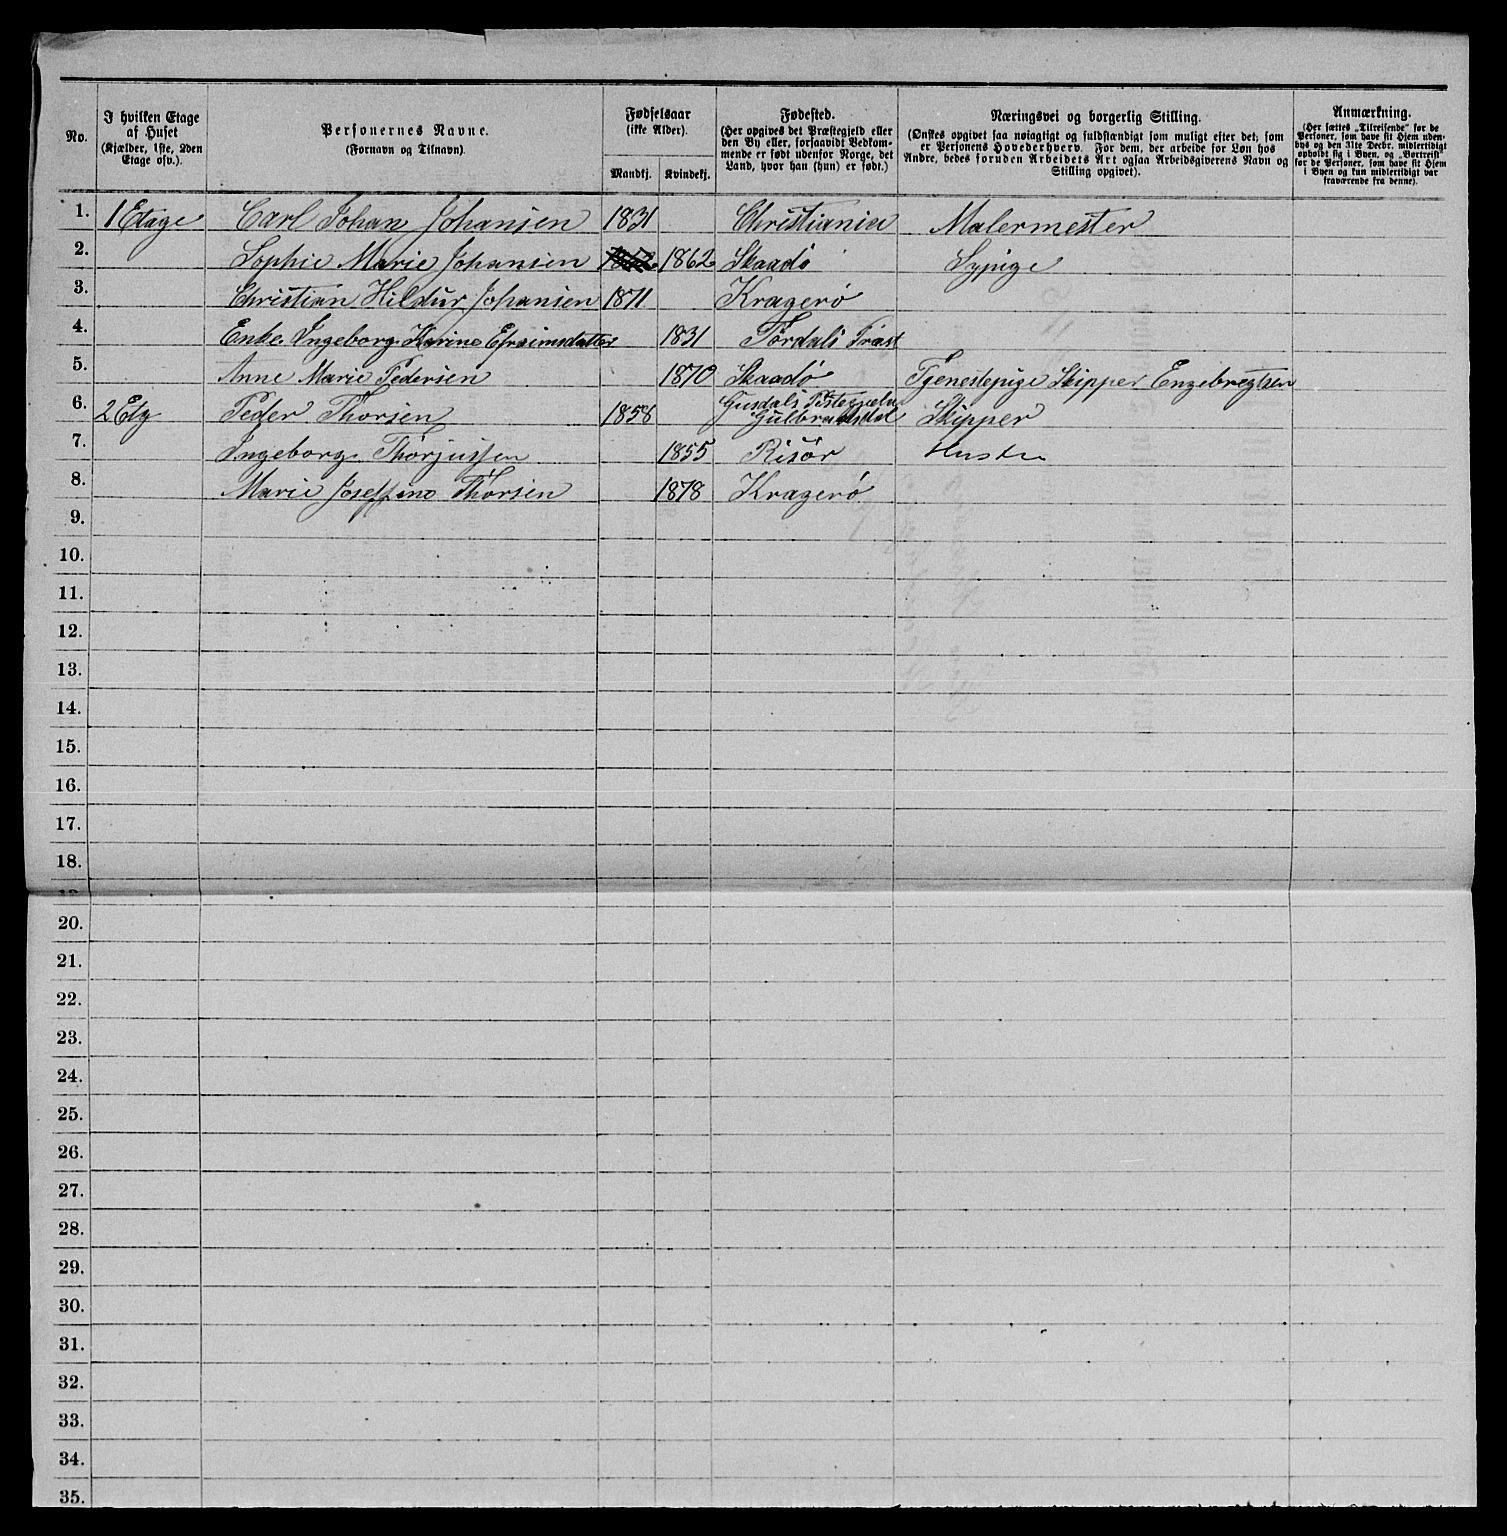 No.
I hvilken Etage af Huset
(Kjælder, 1ste, 2den Etage osv.).
Personernes Navne.
(Fornavn og Tilnavn).
Fødselsaar
(ikke Alder).
Mandkj. Kvindekj.
Fødested.
(Her opgives det Præstegjeld eller
den By eller, forsaavidt Vedkom-
mende er født udenfor Norge, det
Land, hvor han (hun) er født.)
Næringsvei og borgerlig Stilling.
(Ønskes opgivet saa nøiagtigt og fuldstændigt som muligt efter det, som
er Personens Hovederhverv. For dem, der arbeide for Løn hos
Andre, bedes foruden Arbeidets Art ogsaa Arbeidsgiverens Navn og
Stilling opgivet).
Anmærkning.
(Her sættes „Tilreisende" for de
Personer, som have sit Hjem uden-
bys og den 31te Decbr. midlertidigt
opholdt sig i Byen, og „Bortreist"
for de Personer, som have sit Hjem
i Byen og kun midlertidigt var
fraværende fra denne).
1. 1 Etage Carl Johan Johansen 1831 Christiania Malermester
2. Sophie Marie Johansen 1862 Skaadö Sypige
3. Christian Hildur Johansen 1871 Kragerö
4. Enke Ingeborg Karine Efraimsdatter 1831 Tördals Præst
5. Anne Marie Pedersen 1870 Skaadö Tjenestepige Skipper Engebregtsen
6. 2 Etg Peder Thorsen 1858 Gusdals Gulbrandsdal Skipper
7. Ingeborg Thorjussen 1855 Risör Hustru
8. Marie Joseffine Thorsen 1878 Kragerö
9.
10.
11.
12.
13.
14.
15.
16.
17.
18.
20.
21.
22.
23.
24.
25.
26.
27.
28.
29.
30.
31.
32.
33.
34.
35.